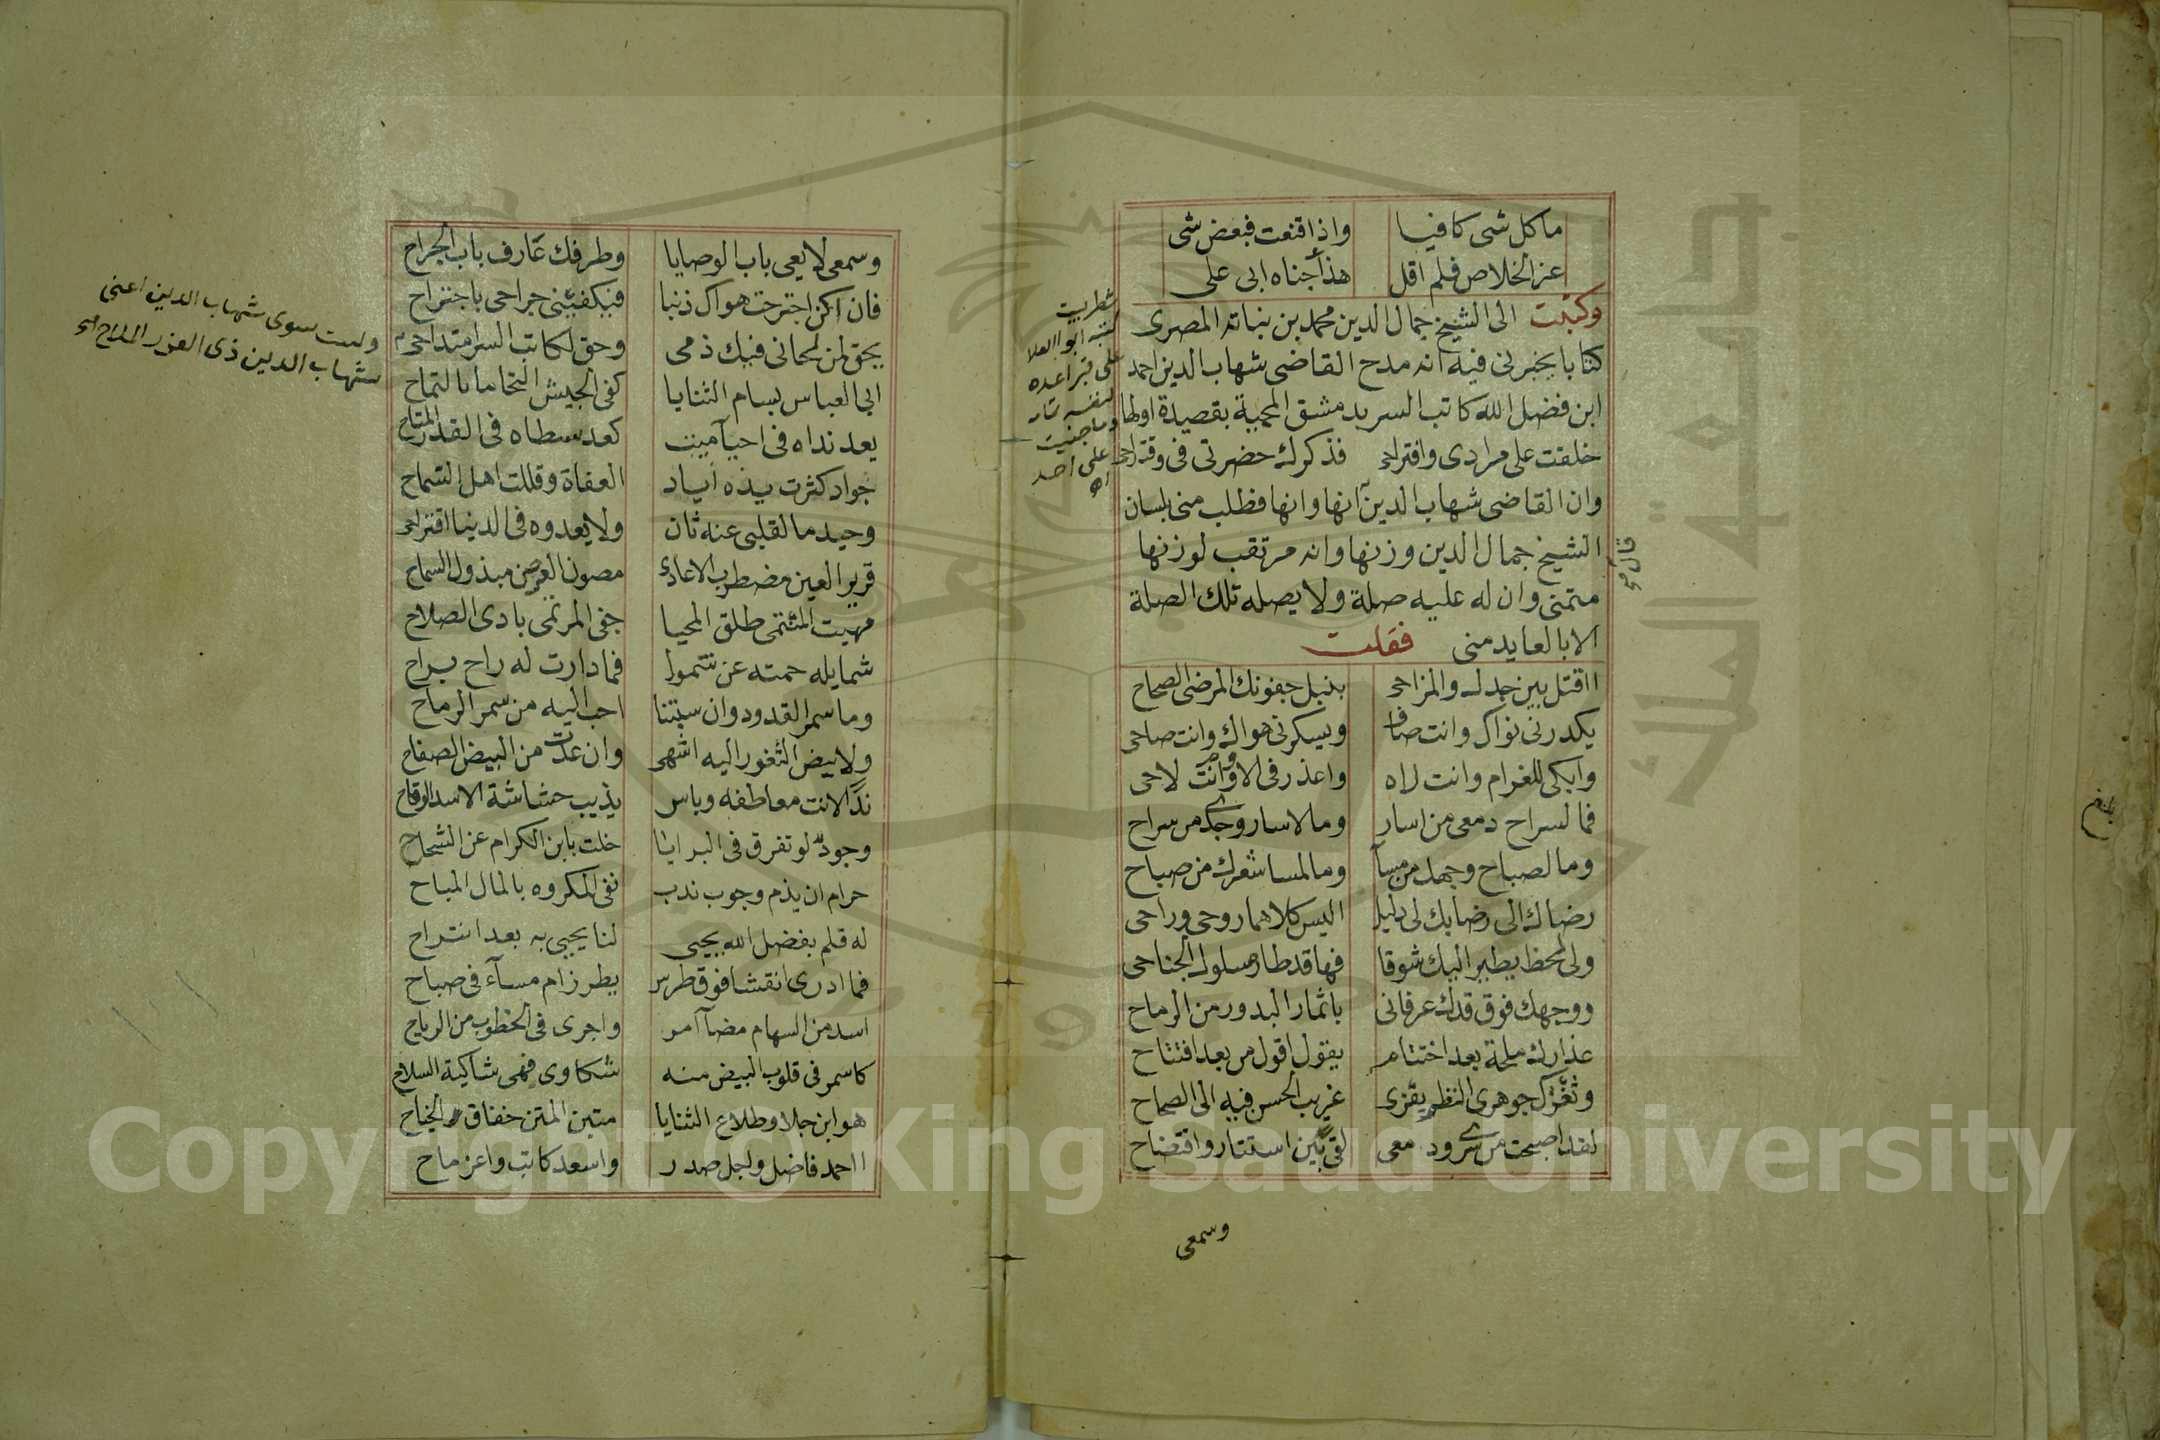 ما كل شى كافيا واذا قنعت فبعض شى
عز الخلاص فلم اقل هذا جناه ابى على
وكتبت الى الشيخ جمال الدين محمد بن نباته المصرى
كتابا يخبرنى فيه انه مدح القاضى شهاب الدين احمد
ابن فضل الله كاتب السر بدمشق المحمية بقصيدة اولها
خلقت على مرادى واقتراحى فذكرك حضرتى فى وقت راحى
وان القاضى شهاب الدين انها وانها فطلب منى بلسان
الشيخ جمال الدين وزنها وانه مرتقب لوزنها
متمنى وان له عليه صلة ولا يصله تلك الصلة
الا بالعايد منى فقلت
ااقتل بين جدك والمزاح بنبل جفونك المرضى الصحاح
يكدرنى نواك وانت صاف ويسكرنى هواك وانت صاحى
وابكى للغرام وانت لاه واعذر فى الاوانت لاحى
فما لسراح دمعى من اسار وما لاسار وجدى من سراح
وما لصباح وجهك من مسآ وما لمسا شعرك من صباح
رضاك الى رضابك لى دليل اليس كلاهما روحى وراحى
ولى لحظ يطير اليك شوقا فها قد طار مسلوك الجناحى
ووجهك فوق قدك عرفانى باثمار البدور من الرماح
عذارك ملحة بعد اختتام يقول اقول من بعد افتتاح
وثغرك جوهرى النظم يقزى غريب الحسن فيه الى الصحاح
لقد اصبحت من سرى ودمعى لقى بين استتار وافتضاح
وسمعى
شطر بيت
كتبه ابو العلا
على قبر اعده
لنفسه
وما جنيت
على احد
اه
وسمعى لا يعى باب الوصايا وطرفك عارف باب الجراح
فان اكن اجترحت هواك ذنبا فيكفينى جراحى باجتراح
يحق لمن لحانى فيك ذمى وحق لكاتب السر امتداحى
ابى العباس بسام الثنايا كفى الجيش التحاما بالتماح
يعد نداه فى احيآ ميت كعد سطاه فى القدر المتاح
جواد كثرت يده اياد العفاة وقللت اهل السماح
وحيد ما لقلبى عنه ثان ولا يعدوه فى الدنيا اقتراحى
قرير العين مضطرب الاعادى مصون العرض مبذول السماح
مهيب المنتمى طلق المحيا جفى المرتمى بادى الصلاح
شمايله حمته عن شمول فما دارت له راح براح
وما سمر القدود وان سبتنا احب اليه من سمر الرماح
ولا بيض الثغور اليه اشهى وان عذبت من البيض الصفاح
ندا لانت معاطفه وباس يذيب حشاشة الاسد الوقاح
وجود لو تفرق فى البرايا خلت بابن الكرام عن الشحاح
حرام ان يذم وجوب ندب نفى المكروه بالمال المباح
له قلم بفضل الله يحيى لنا يحيى به بعد انتراح
فما ادرى انقشا فوق طرس يطرز ام مسآء فى صباح
اسد من السهام مضآ امر واجرى فى الخطوب من الرياح
كاسمر فى قلوب البيض منه شكاوى فهى شاكية السلاح
هو ابن جلا وطلاع الثنايا متين المتن خفاق الجناح
ااحمد فاضل ولجل صدر واسعد كاتب واعز ماح
ولست سوى شهاب الدين اعنى
شهاب الدين ذى الغرر الملاح
Copyright © King Saud University